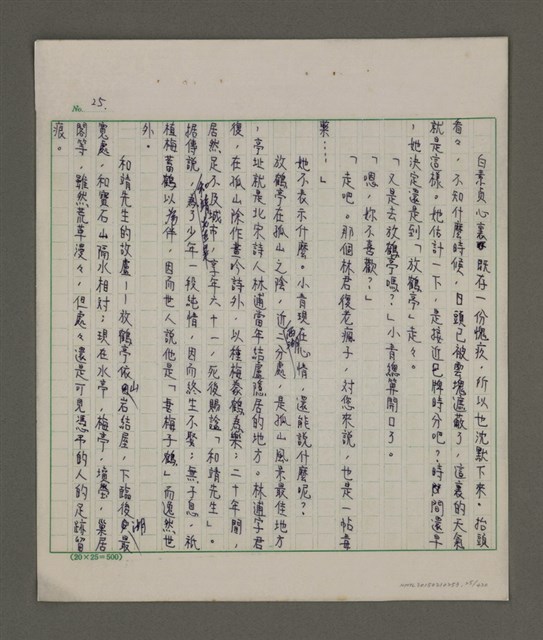 No. 25.
白素貞心裏既存一份愧疚，所以也沈默下來。抬頭
看々，不知什麼時候，日頭已被雲塊遮蔽了，這裏的天氣
就是這樣。她估計一下，是接近巳牌時分吧？時間還早
，她決定還是到「放鶴亭」走々。
「又是去放鶴亭嗎？」小青總算開口了。
「嗯，妳不喜歡？」
「走吧。那個林君復老瘋子，對您來說，也是一帖毒
藥…」
她不表示什麼。小青現在心情，還能說什麼呢？
放鶴亭在孤山之陰，近西湖二分處，是孤山風景最佳地方
，亭地就是北宋詩人林逋當年結廬隱居的地方。林逋字君
復，在孤山除作畫吟詩外，以種梅養鶴為樂；二十年間，
居然足不及城市，享年六十一，死後賜諡「和靖先生」。
据傳說，和靖為了少年一段純情，因而終生不娶；無子息，祇
植梅蓄鶴以為伴，因而世人說他是「妻梅子鶴」而逸然世
外。
和靖先生的故廬——放鶴亭依山岩結屋，下臨後湖最
寬處，和寶石山隔水相對；現在水亭，梅亭，墳塋，巢居
閣等，雖然荒草漫々，但處々還是可見憑弔的人的足跡留
痕。
(20×25=500)